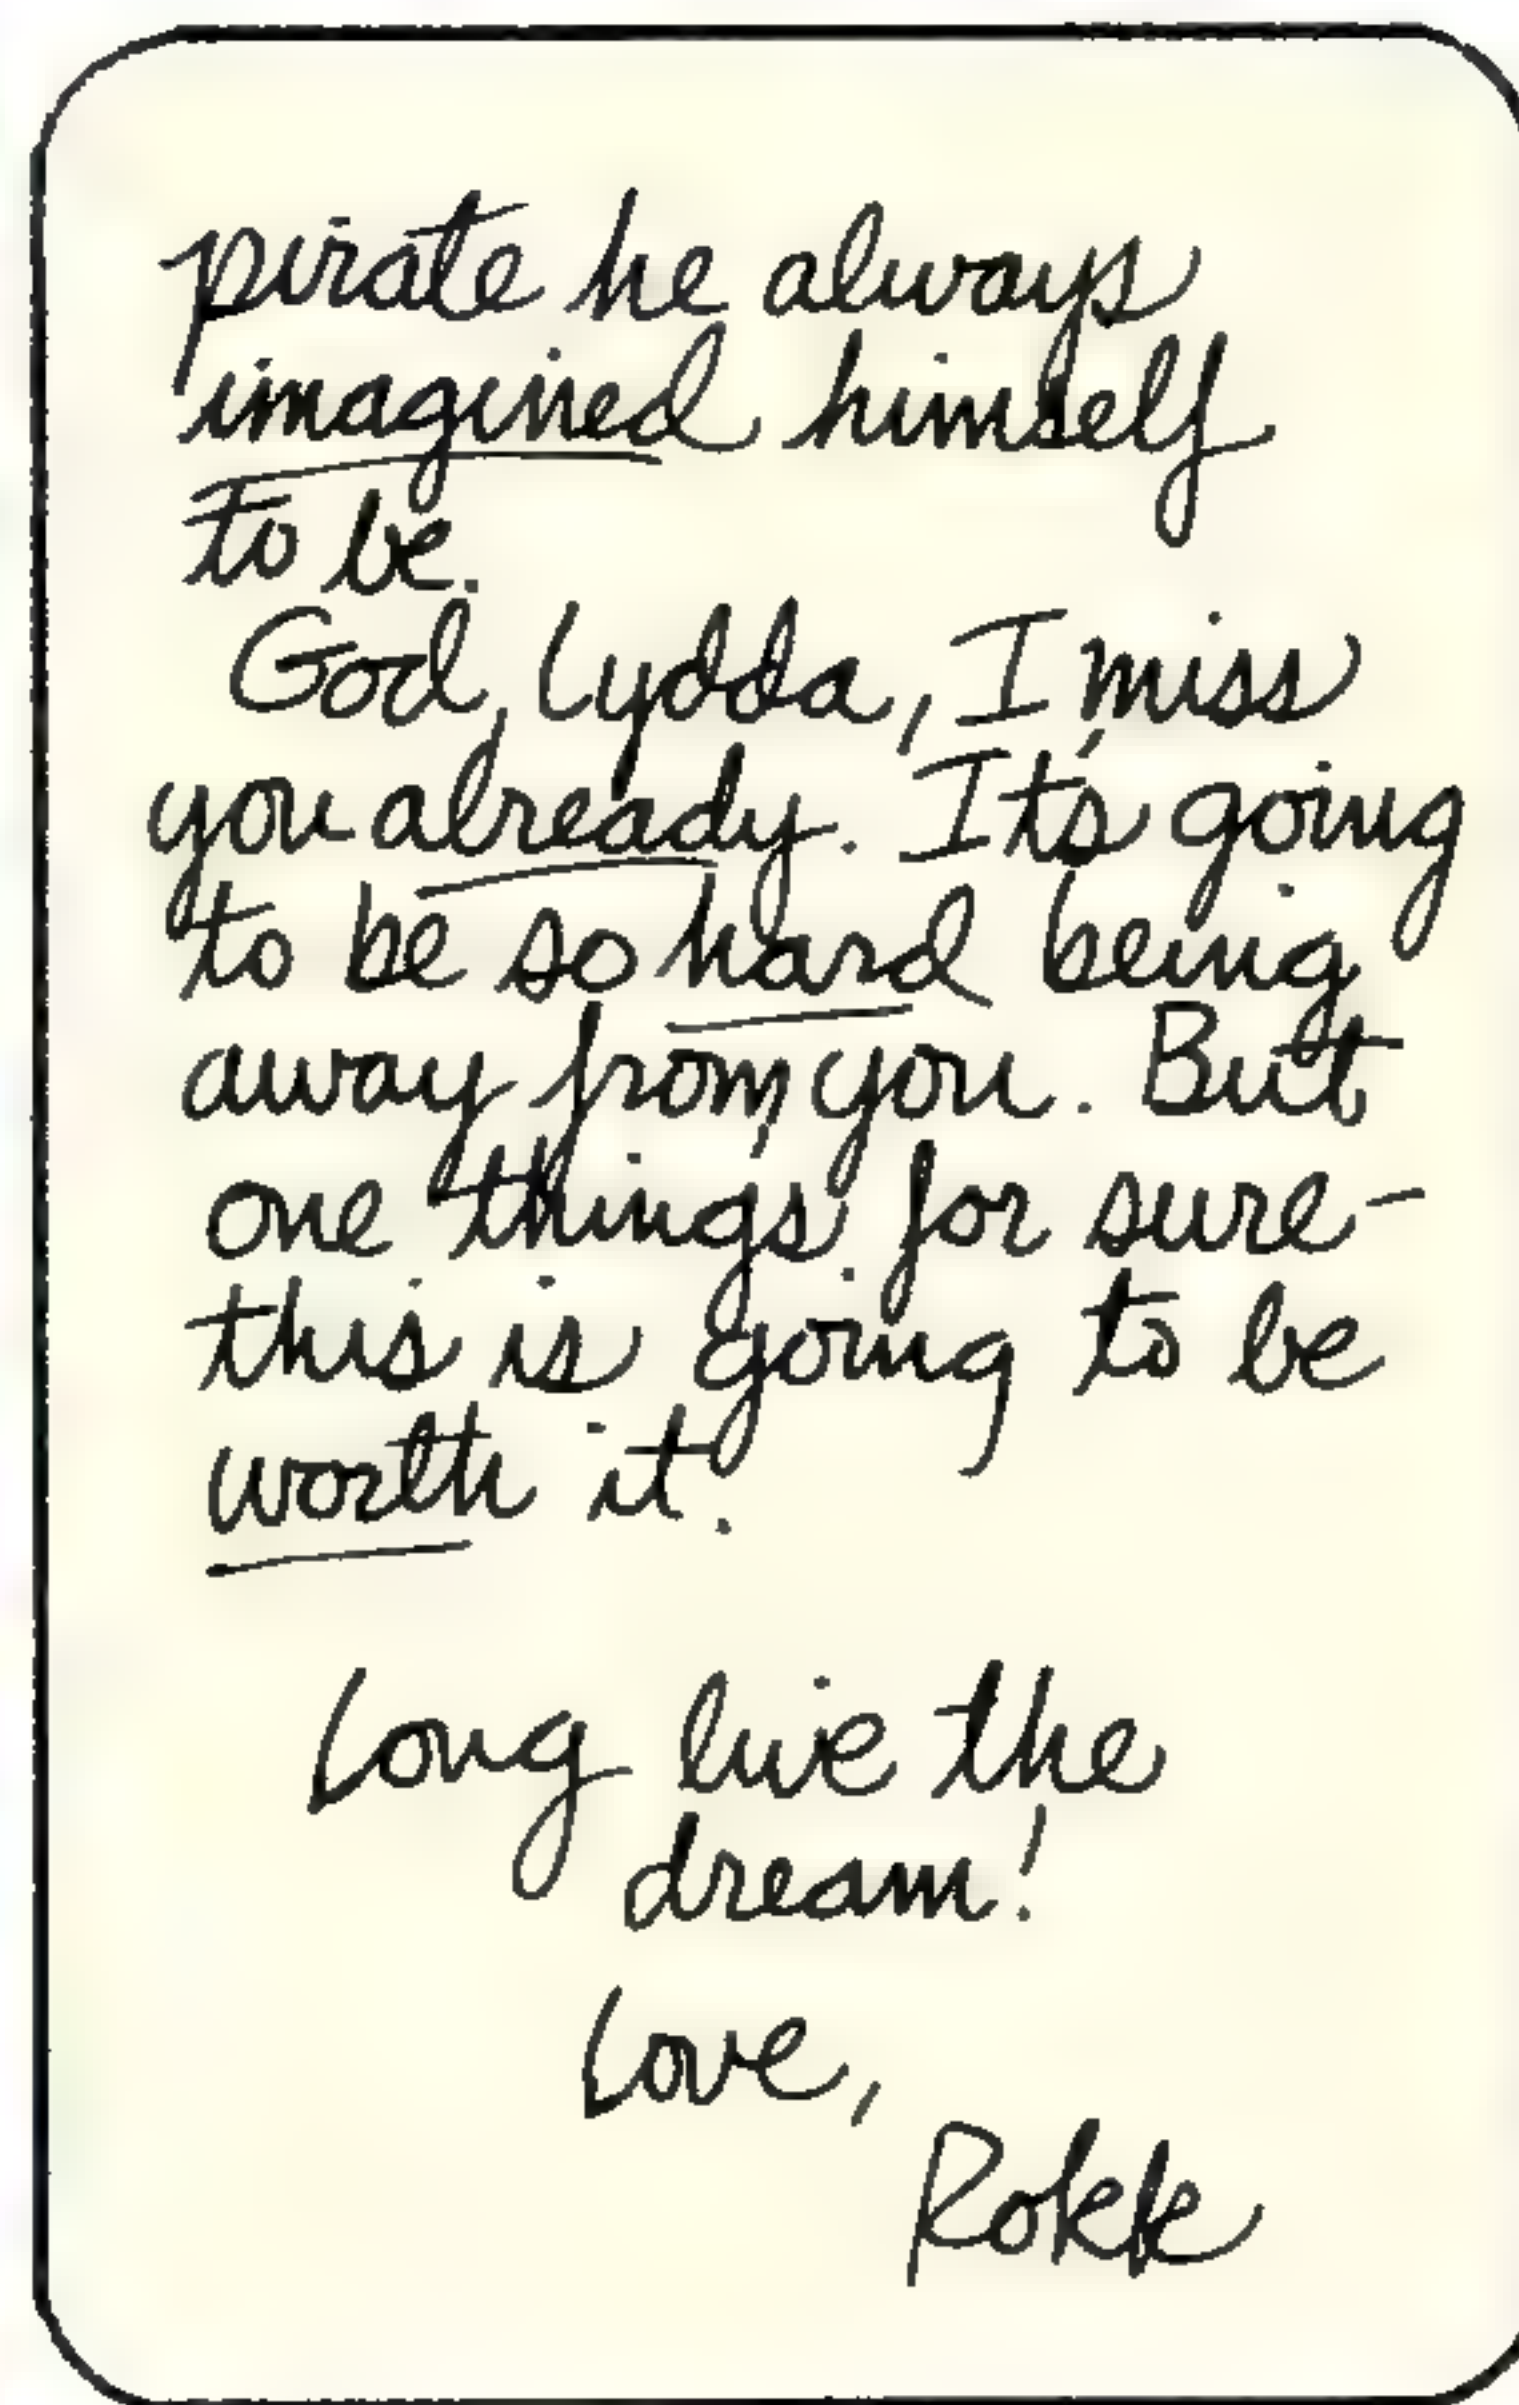 pirate he always
imagined himself
to be.
God, Lydda, I miss
you already. It's going
to be so hard being
away from you. But
one thing's for sure-
this is going to be
worth it.
Long live the
dream!
Love,
Rokk